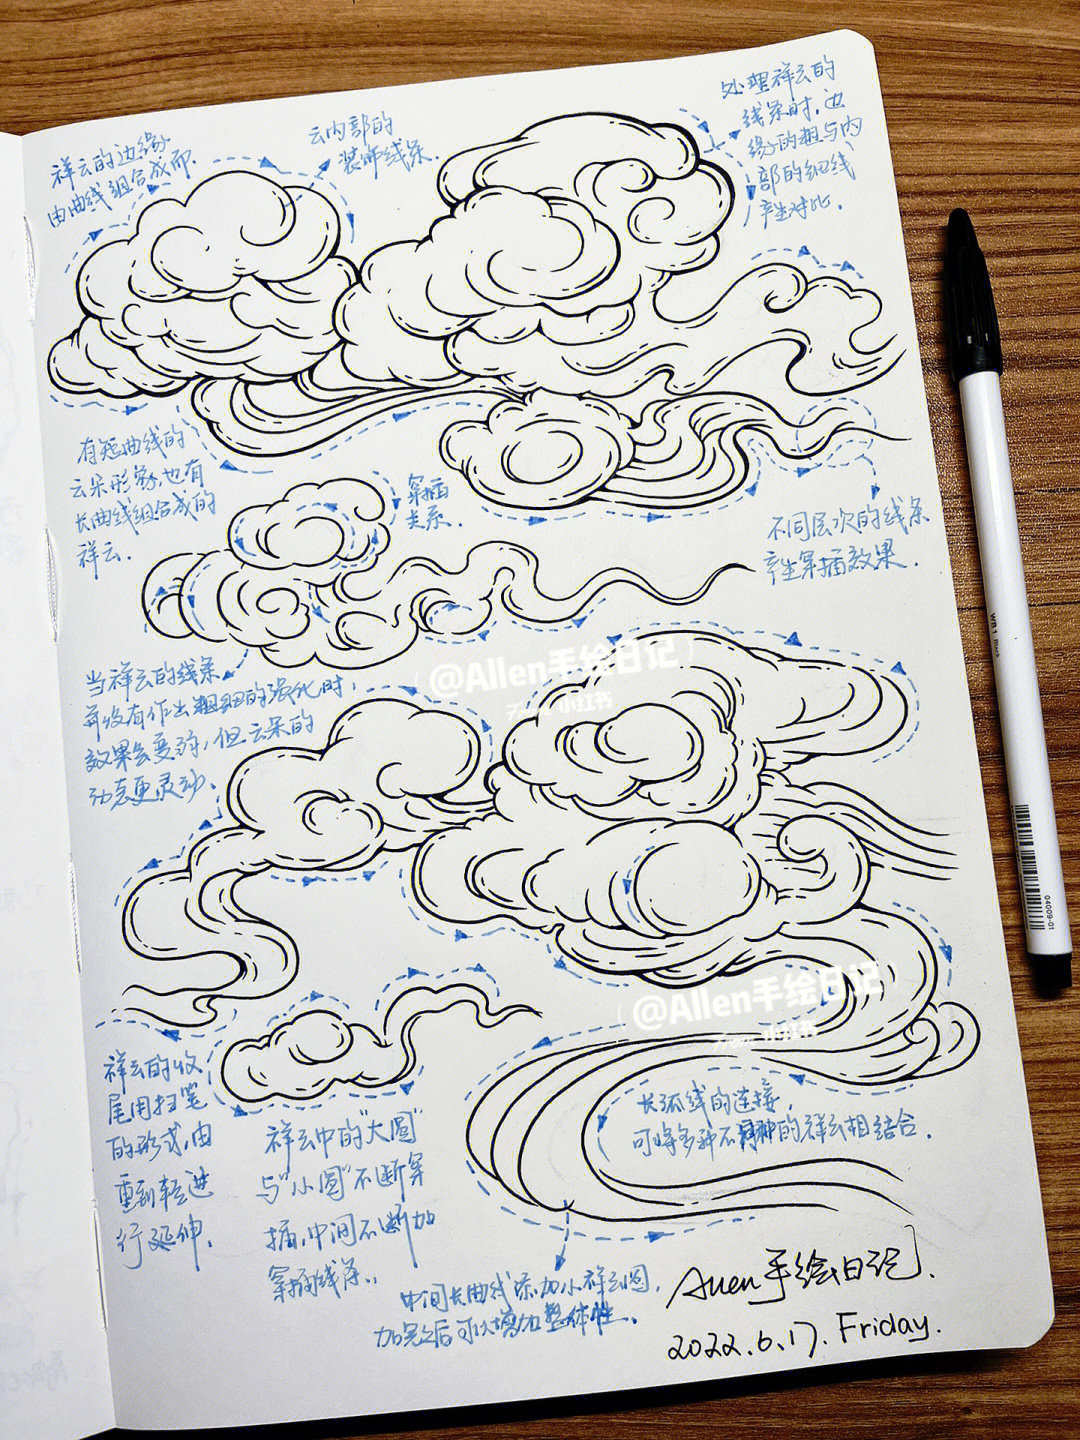 祥云的边缘
由曲线组合成而.
云内部的
装饰线条.
处理祥云的
线条时,边
缘的粗与内
部的细线
产生对比.
有短曲线的
云朵形象,也有
长曲线组合成的
祥云.
穿插
关系.
不同层次的线条
产生穿插效果.
当祥云的线条
并没有作出粗细的强化时,
效果会变弱,但云朵的
动态更灵动.
@Allen手绘日记
From 小红书
@Allen手绘日记
From 小红书
祥云的收
尾用扫笔
的形式,由
重到轻进
行延伸.
祥云中的"大圆"
与"小圆"不断穿
插,中间不断加
穿插线条..
长弧线的连接,
可将多种不同种的祥云相结合.
中间长曲线条加小祥云圆,
加完之后可以增加整体性.
Allen手绘日记.
2022.6.17. Friday.
04009-01